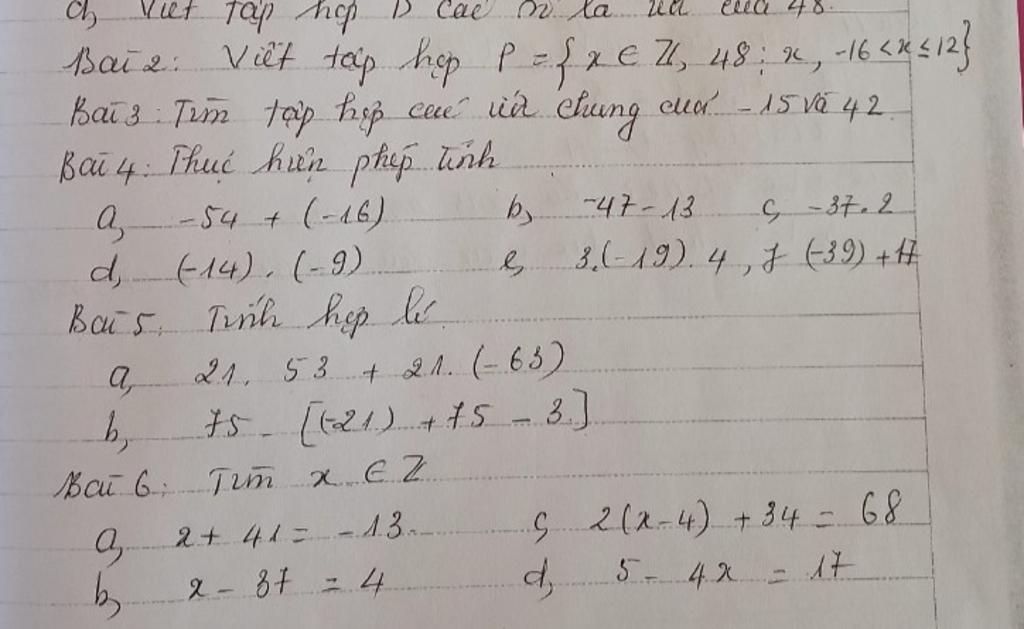 d, Viết tập hợp D các là ước của 48.
Bài 2: Viết tập hợp P = { x ∈ Z, 48 ⋮ x, -16 < x ≤ 12}
Bài 3: Tìm tập hợp các ước chung của -15 và 42
Bài 4: Thực hiện phép tính
a, -54 + (-16) b, -47 - 13 c, -37.2
d, (-14). (-9) e, 3.(-19). 4, f (-39) + 17
Bài 5: Tính hợp lí
a, 21. 53 + 21. (-63)
b, 75 - [(-21) + 75 - 3.]
Bài 6: Tìm x ∈ Z
a, x + 41 = -13. c, 2(x-4) + 34 = 68
b, x - 37 = 4 d, 5 - 4x = 17